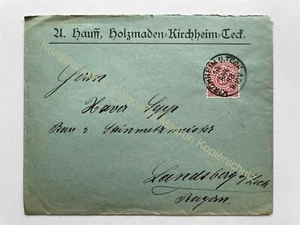 A. Hauff, Holzmaden-Kirchheim-Teck.
KIRCHHEIM U. TECK
Herrn
Xaver Sepp
Bau & Steinmetzmeister
Landsberg a/Lech
Bayern.
Kopierschutz